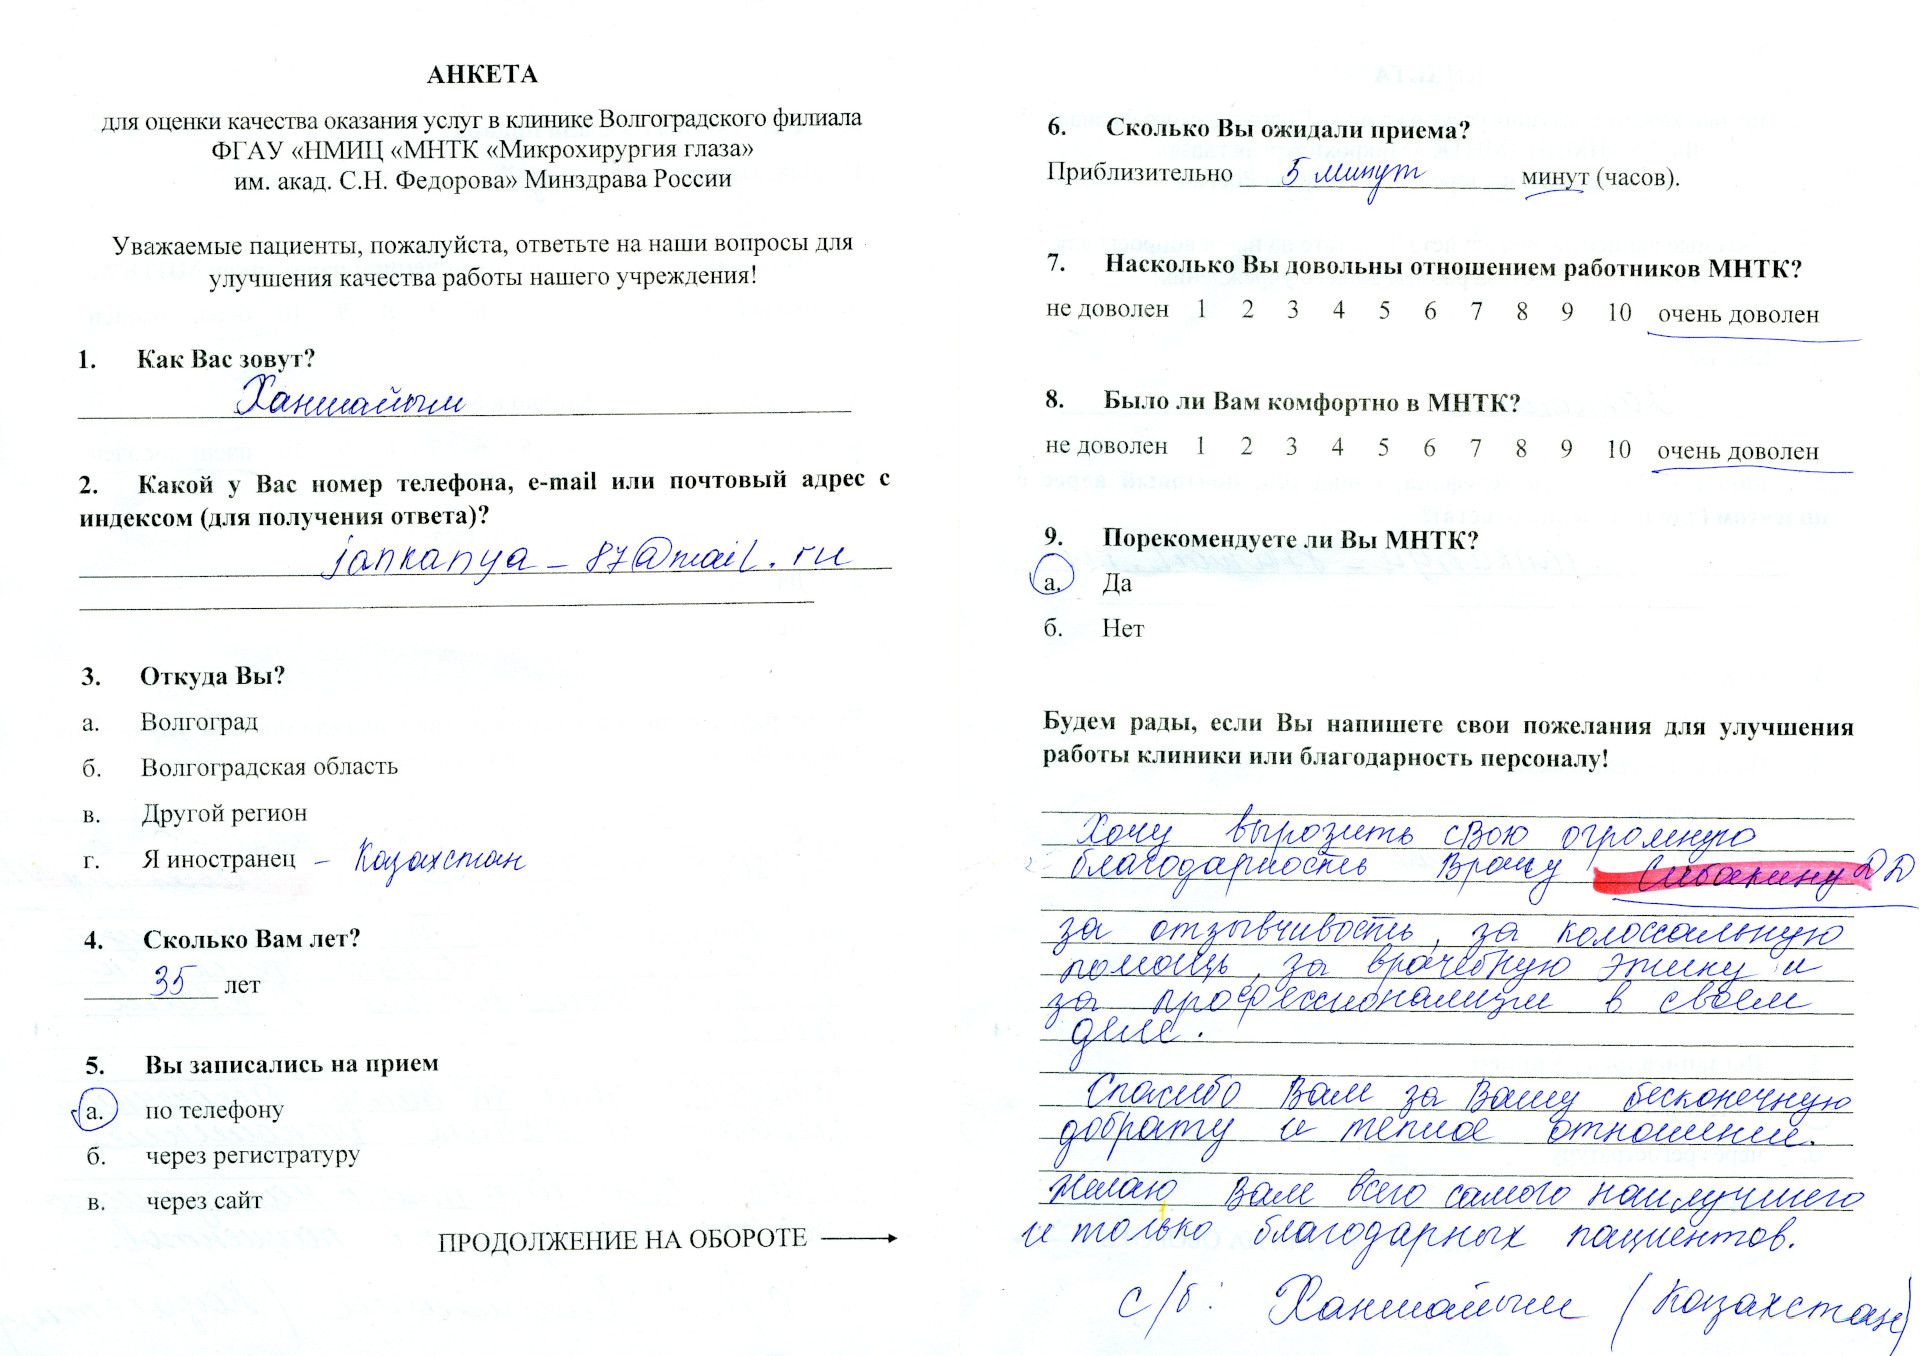 АНКЕТА
для оценки качества оказания услуг в клинике Волгоградского филиала
ФГАУ «НМИЦ «МНТК «Микрохирургия глаза»
им. акад. С.Н. Федорова» Минздрава России
Уважаемые пациенты, пожалуйста, ответьте на наши вопросы для
улучшения качества работы нашего учреждения!
1. Как Вас зовут?
Ханшайым
2. Какой у Вас номер телефона, e-mail или почтовый адрес с
индексом (для получения ответа)?
jankanya_87@mail.ru
3. Откуда Вы?
а. Волгоград
б. Волгоградская область
в. Другой регион
г. Я иностранец – Казахстан
4. Сколько Вам лет?
35 лет
5. Вы записались на прием
а. по телефону
б. через регистратуру
в. через сайт
ПРОДОЛЖЕНИЕ НА ОБОРОТЕ
6. Сколько Вы ожидали приема?
Приблизительно 5 минут минут (часов).
7. Насколько Вы довольны отношением работников МНТК?
не доволен 1 2 3 4 5 6 7 8 9 10 очень доволен
8. Было ли Вам комфортно в МНТК?
не доволен 1 2 3 4 5 6 7 8 9 10 очень доволен
9. Порекомендуете ли Вы МНТК?
а. Да
б. Нет
Будем рады, если Вы напишете свои пожелания для улучшения
работы клиники или благодарность персоналу!
Хочу вырозить свою огромную
благодарность Врачу ДД
за отзывчивость, за колоссальную
помощь, за врачебную этику и
за профессионализм в своем
деле.
Спасибо Вам за Вашу бесконечную
доброту и теплое отношение.
Желаю Вам всего самого наилучшего
и только благодарных пациентов.
с/б: Ханшайым (Казахстан)